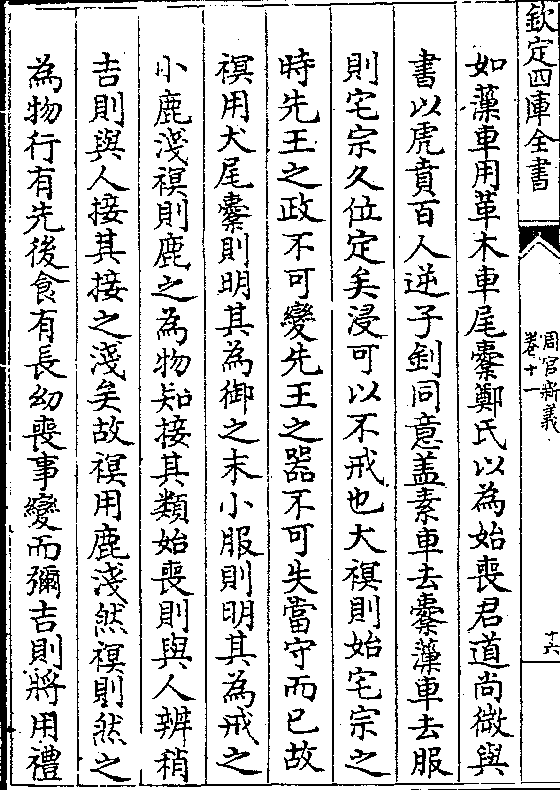 欽定四庫全書
周官新義
卷十一
十六
如薻車用革木車尾櫜鄭氏以為始喪君道尚微與
書以虎賁百人逆子釗同意盖素車去櫜薻車去服
則宅宗久位定矣浸可以不戒也犬𧛾則始宅宗之
時先王之政不可變先王之器不可失當守而已故
𧛾用犬尾櫜則明其為御之末小服則明其為戒之
小鹿淺𧛾則鹿之為物知接其類始喪則與人辨稍
吉則與人接其接之淺矣故𧛾用鹿淺然𧛾則然之
為物行有先後食有長幼喪事變而彌吉則將用禮